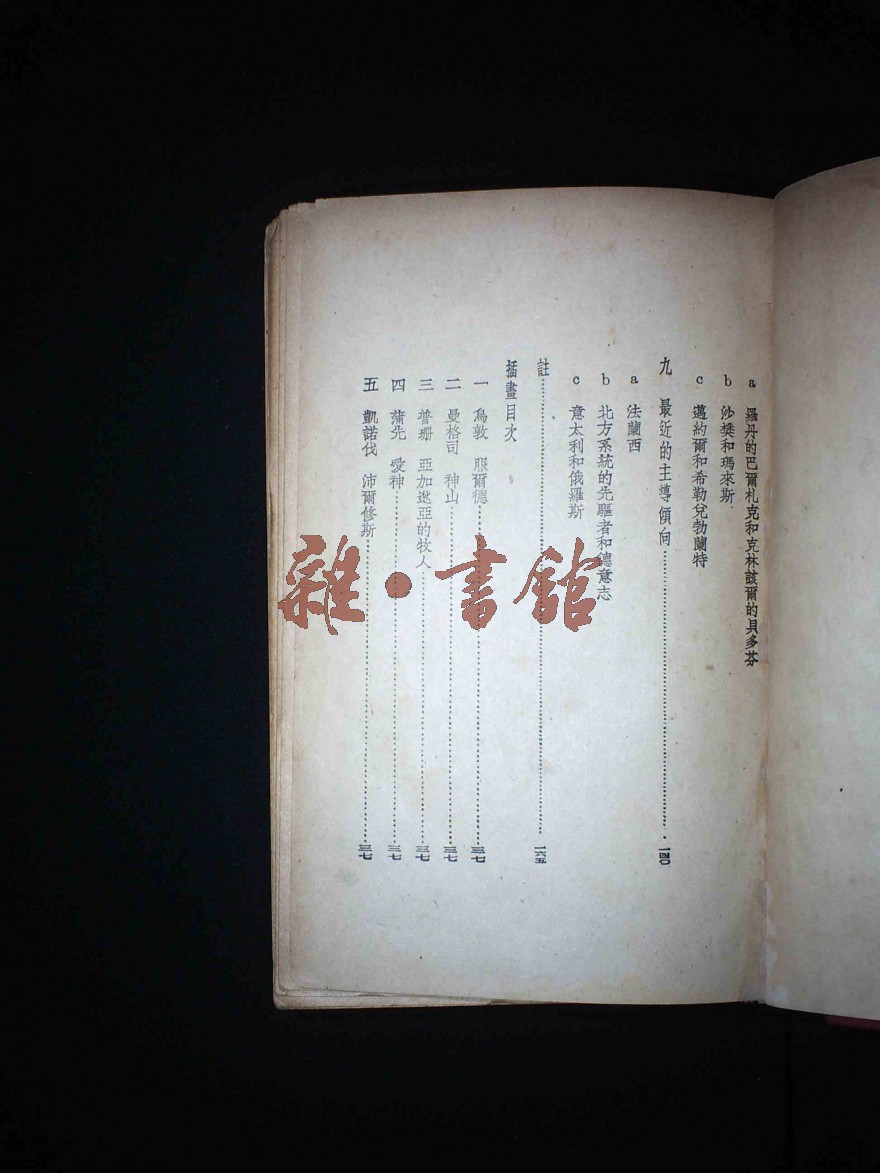 a 羅丹的巴爾札克和克林該爾的貝多芬
b 沙樊和瑪來斯
c 邁約爾和希勒兌勃蘭特
九 最近的主導傾向……一四〇
a 法蘭西
b 北方系統的先驅者和德意志
c 意太利和俄羅斯
註……一六五
插畫目次
一 烏敦 服爾德……三七
二 曼格司 神山……三七
三 普珊 亞加遜亞的牧人……三七
四 蒲先 愛神……三七
五 凱諾伐 沛爾修斯……三七
雜·書館